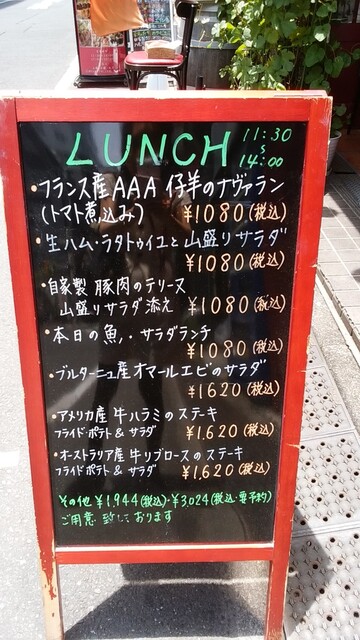 LUNCH 11:30
～
14:00
・フランス産AAA 仔羊のナヴァラン
(トマト煮込み) ¥1080(税込)
・生ハム・ラタトゥイユと山盛りサラダ
¥1080(税込)
・自家製 豚肉のテリーヌ
山盛りサラダ添え ¥1080(税込)
・本日の魚,・サラダランチ
¥1080(税込)
・ブルターニュ産オマールエビのサラダ
¥1620(税込)
・アメリカ産 牛ハラミのステキ
フライドポテト & サラダ ¥1,620(税込)
・オーストラリア産 牛リブロースのステキ
フライドポテト & サラダ ¥1,620(税込)
その他 ¥1,944(税込)・¥3,024(税込・要予約)
ご用意 致しております